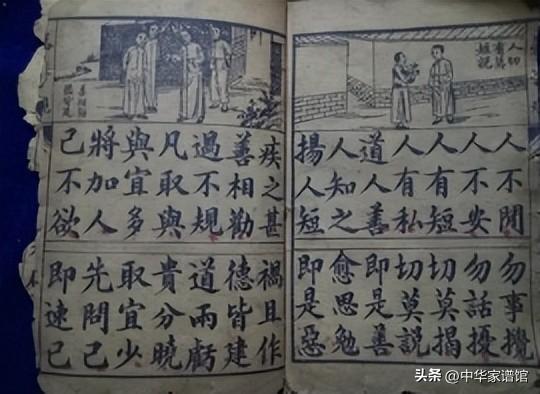 人不閒 勿事攪
人不安 勿話擾
人有短 切莫揭
人有私 切莫說
道人善 即是善
人知之 愈思勉
揚人短 即是惡
善相勸
德皆建
疾之甚 禍且作
善相勸 德皆建
過不規 道兩虧
凡取與 貴分曉
與宜多 取宜少
將加人 先問己
己不欲 即速已
头条 @中华家谱馆